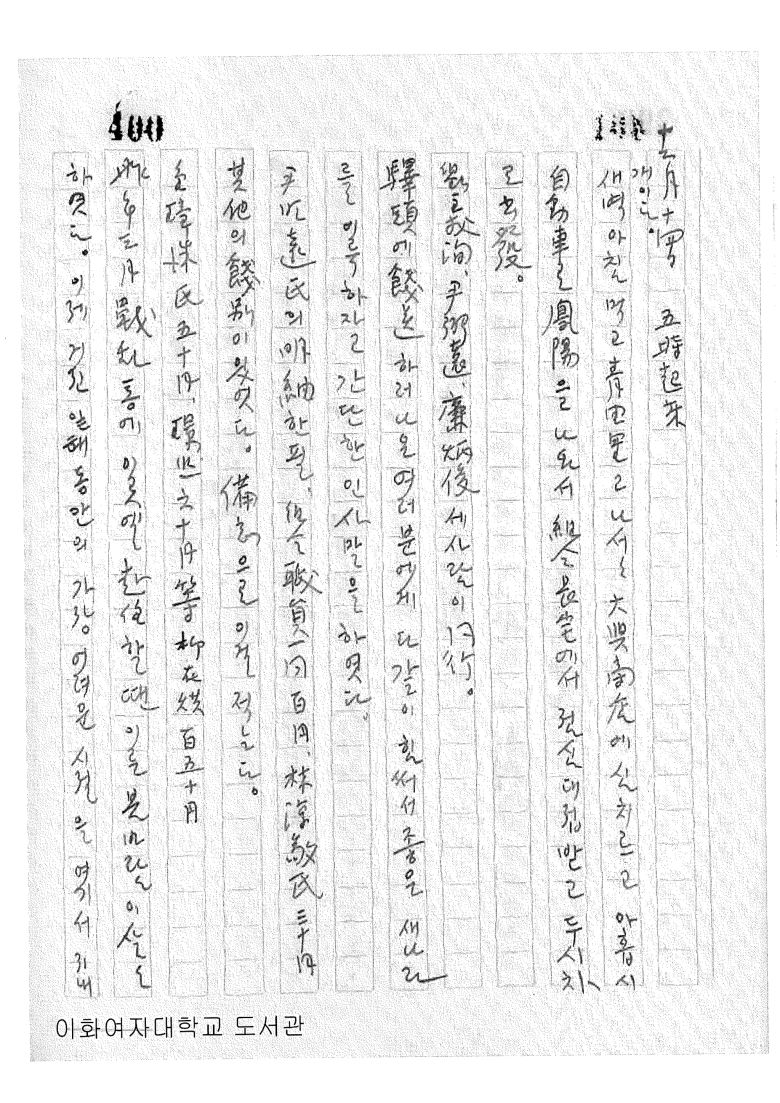 400
十二月十四日 五時起床
개이다。
새벽 아침 먹고 靑田里로 나서는 大興商店에 심치르고 아홉시
自動車로 鳳陽을 나와서 組合長宅에서 점심대접받고 두시차
로 出發。
尹弼遠、廉炳俊 세사람이 同行。
驛頭에 餞送하러 나온 여러분에게 다같이 힘써서 좋은 새나라
를 이룩하자고 간단한 인사말을 하엿다。
尹 遠氏의 明紬 한필、組合職員一同 百円、林 敬氏 三十円
其他의 餞別이 잇엇다。備忘으로 이걸 적는다。
洙氏 五十円、 六十円 等 柳在 百五十円
昨年 三月 戰亂통에 이곳엘 할 때 이들
하엿다。이제 거진 일해동안의 가장 어려운 시절을 여기서 지내
이화여자대학교 도서관